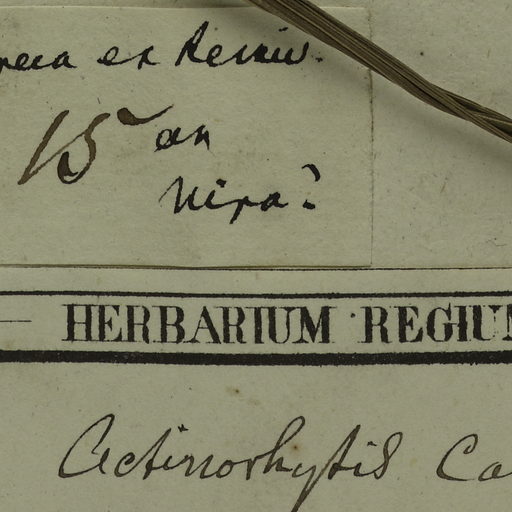 ex Reinw.
15 an
Nipa?
HERBARIUM REGIUM
Actinorhytis Ca